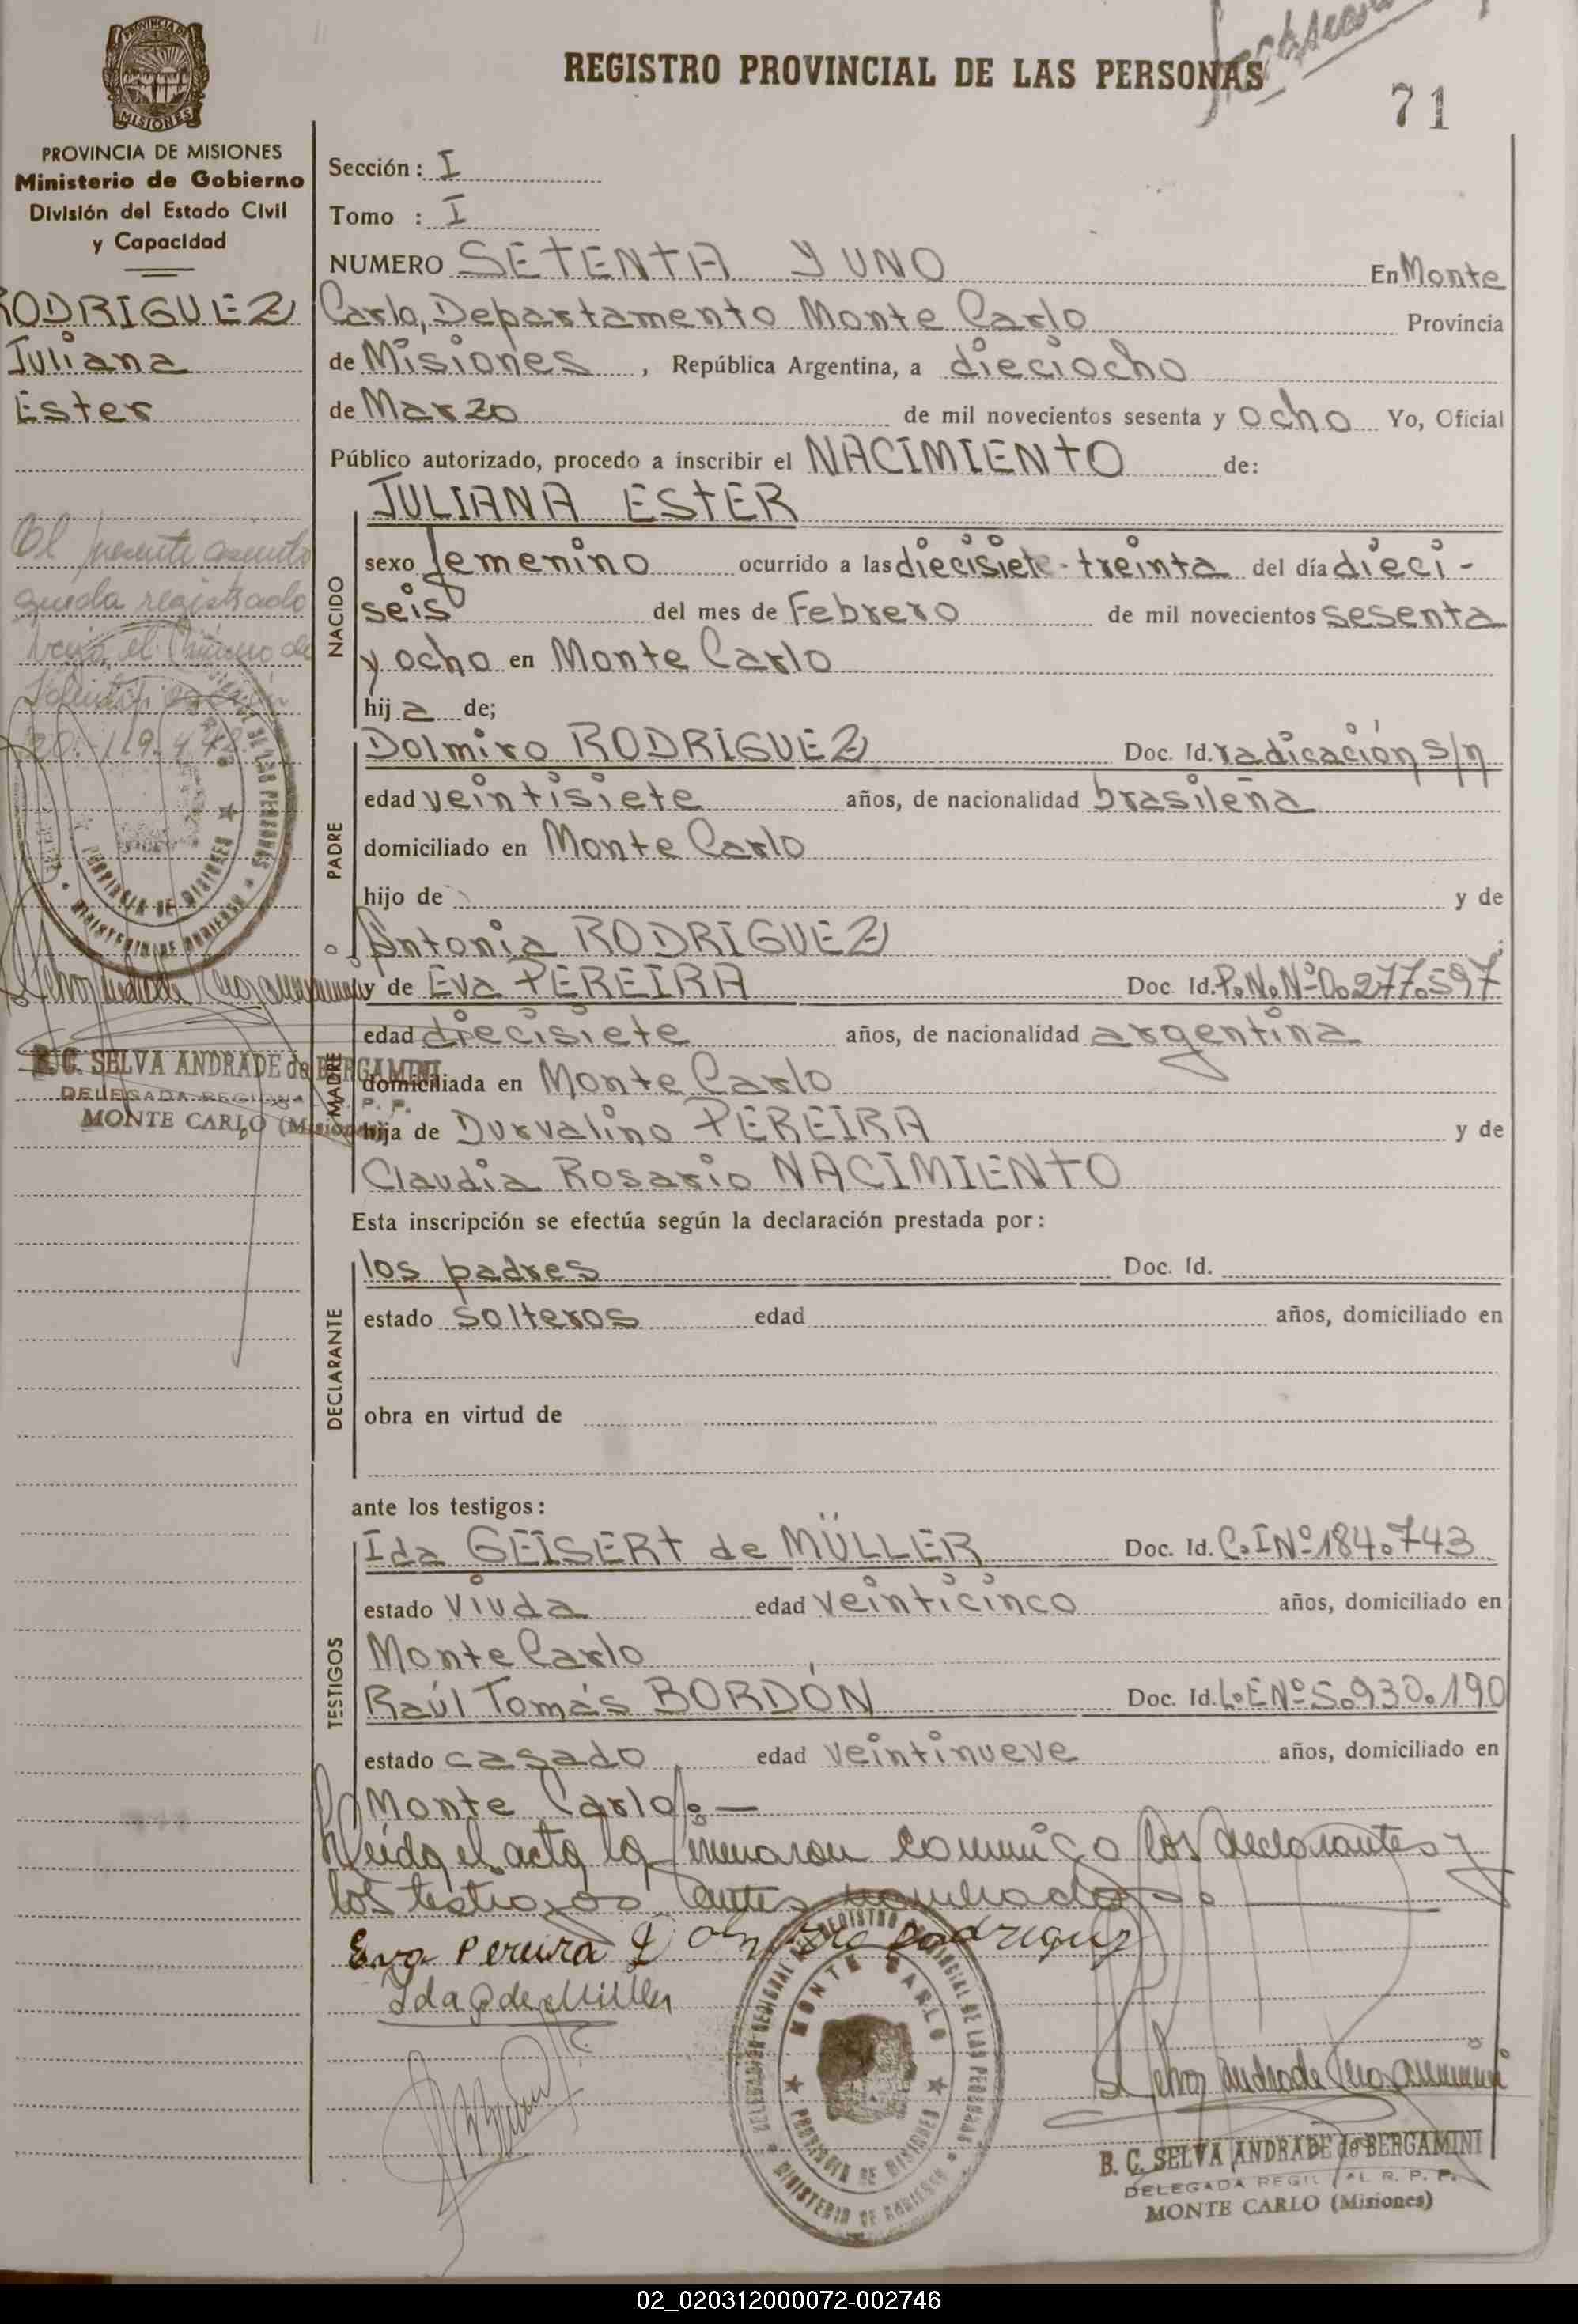 REGISTRO PROVINCIAL DE LAS PERSONAS
71
MISIONES
PROVINCIA DE MISIONES
Ministerio de Gobierno
División del Estado Civil
y Capacidad
RODRIGUEZ
Juliana
Ester
El presente asiento
queda registrado
bajo el Número de
B. C. SELVA ANDRADE de BERGAMINI
DELEGADA REGIONAL R. P. P.
MONTE CARLO (Misiones)
Sección: I
Tomo : I
NUMERO SETENTA Y UNO En Monte
Carlo, Departamento Monte Carlo Provincia
de Misiones, República Argentina, a dieciocho
de Marzo de mil novecientos sesenta y ocho Yo, Oficial
Público autorizado, procedo a inscribir el NACIMIENTO de:
NACIDO
JULIANA ESTER
sexo femenino ocurrido a las diecisiete-treinta del día dieci-
seis del mes de Febrero de mil novecientos sesenta
y ocho en Monte Carlo
hija de;
PADRE
Dolmiro RODRIGUEZ Doc. Id. radicación s/n
edad veintisiete años, de nacionalidad brasileña
domiciliado en Monte Carlo
hijo de y de
Antonia RODRIGUEZ
MADRE
y de Eva PEREIRA Doc. Id. P.N.Nº 0.277.597
edad diecisiete años, de nacionalidad argentina
domiciliada en Monte Carlo
hija de Durvalino PEREIRA y de
Claudia Rosario NACIMIENTO
Esta inscripción se efectúa según la declaración prestada por:
DECLARANTE
los padres Doc. Id.
estado solteros edad años, domiciliado en
obra en virtud de
ante los testigos:
TESTIGOS
Ida GEISERT de MÜLLER Doc. Id. C.I Nº 184.743
estado viuda edad veinticinco años, domiciliado en
Monte Carlo
Raúl Tomás BORDÓN Doc. Id. L.E Nº 5.930.190
estado casado edad veintinueve años, domiciliado en
Monte Carlo.—
Leída el acta la firmaron conmigo los declarantes y
los testigos antes nombrados.
Eva Pereira Dolmiro Rodriguez
Ida G de Müller
DELEGACION REGIONAL DEL REGISTRO PROVINCIAL DE LAS PERSONAS
MONTE CARLO
PROVINCIA DE MISIONES
MINISTERIO DE GOBIERNO
B. C. SELVA ANDRADE de BERGAMINI
DELEGADA REGIONAL R. P. P.
MONTE CARLO (Misiones)
02_020312000072-002746